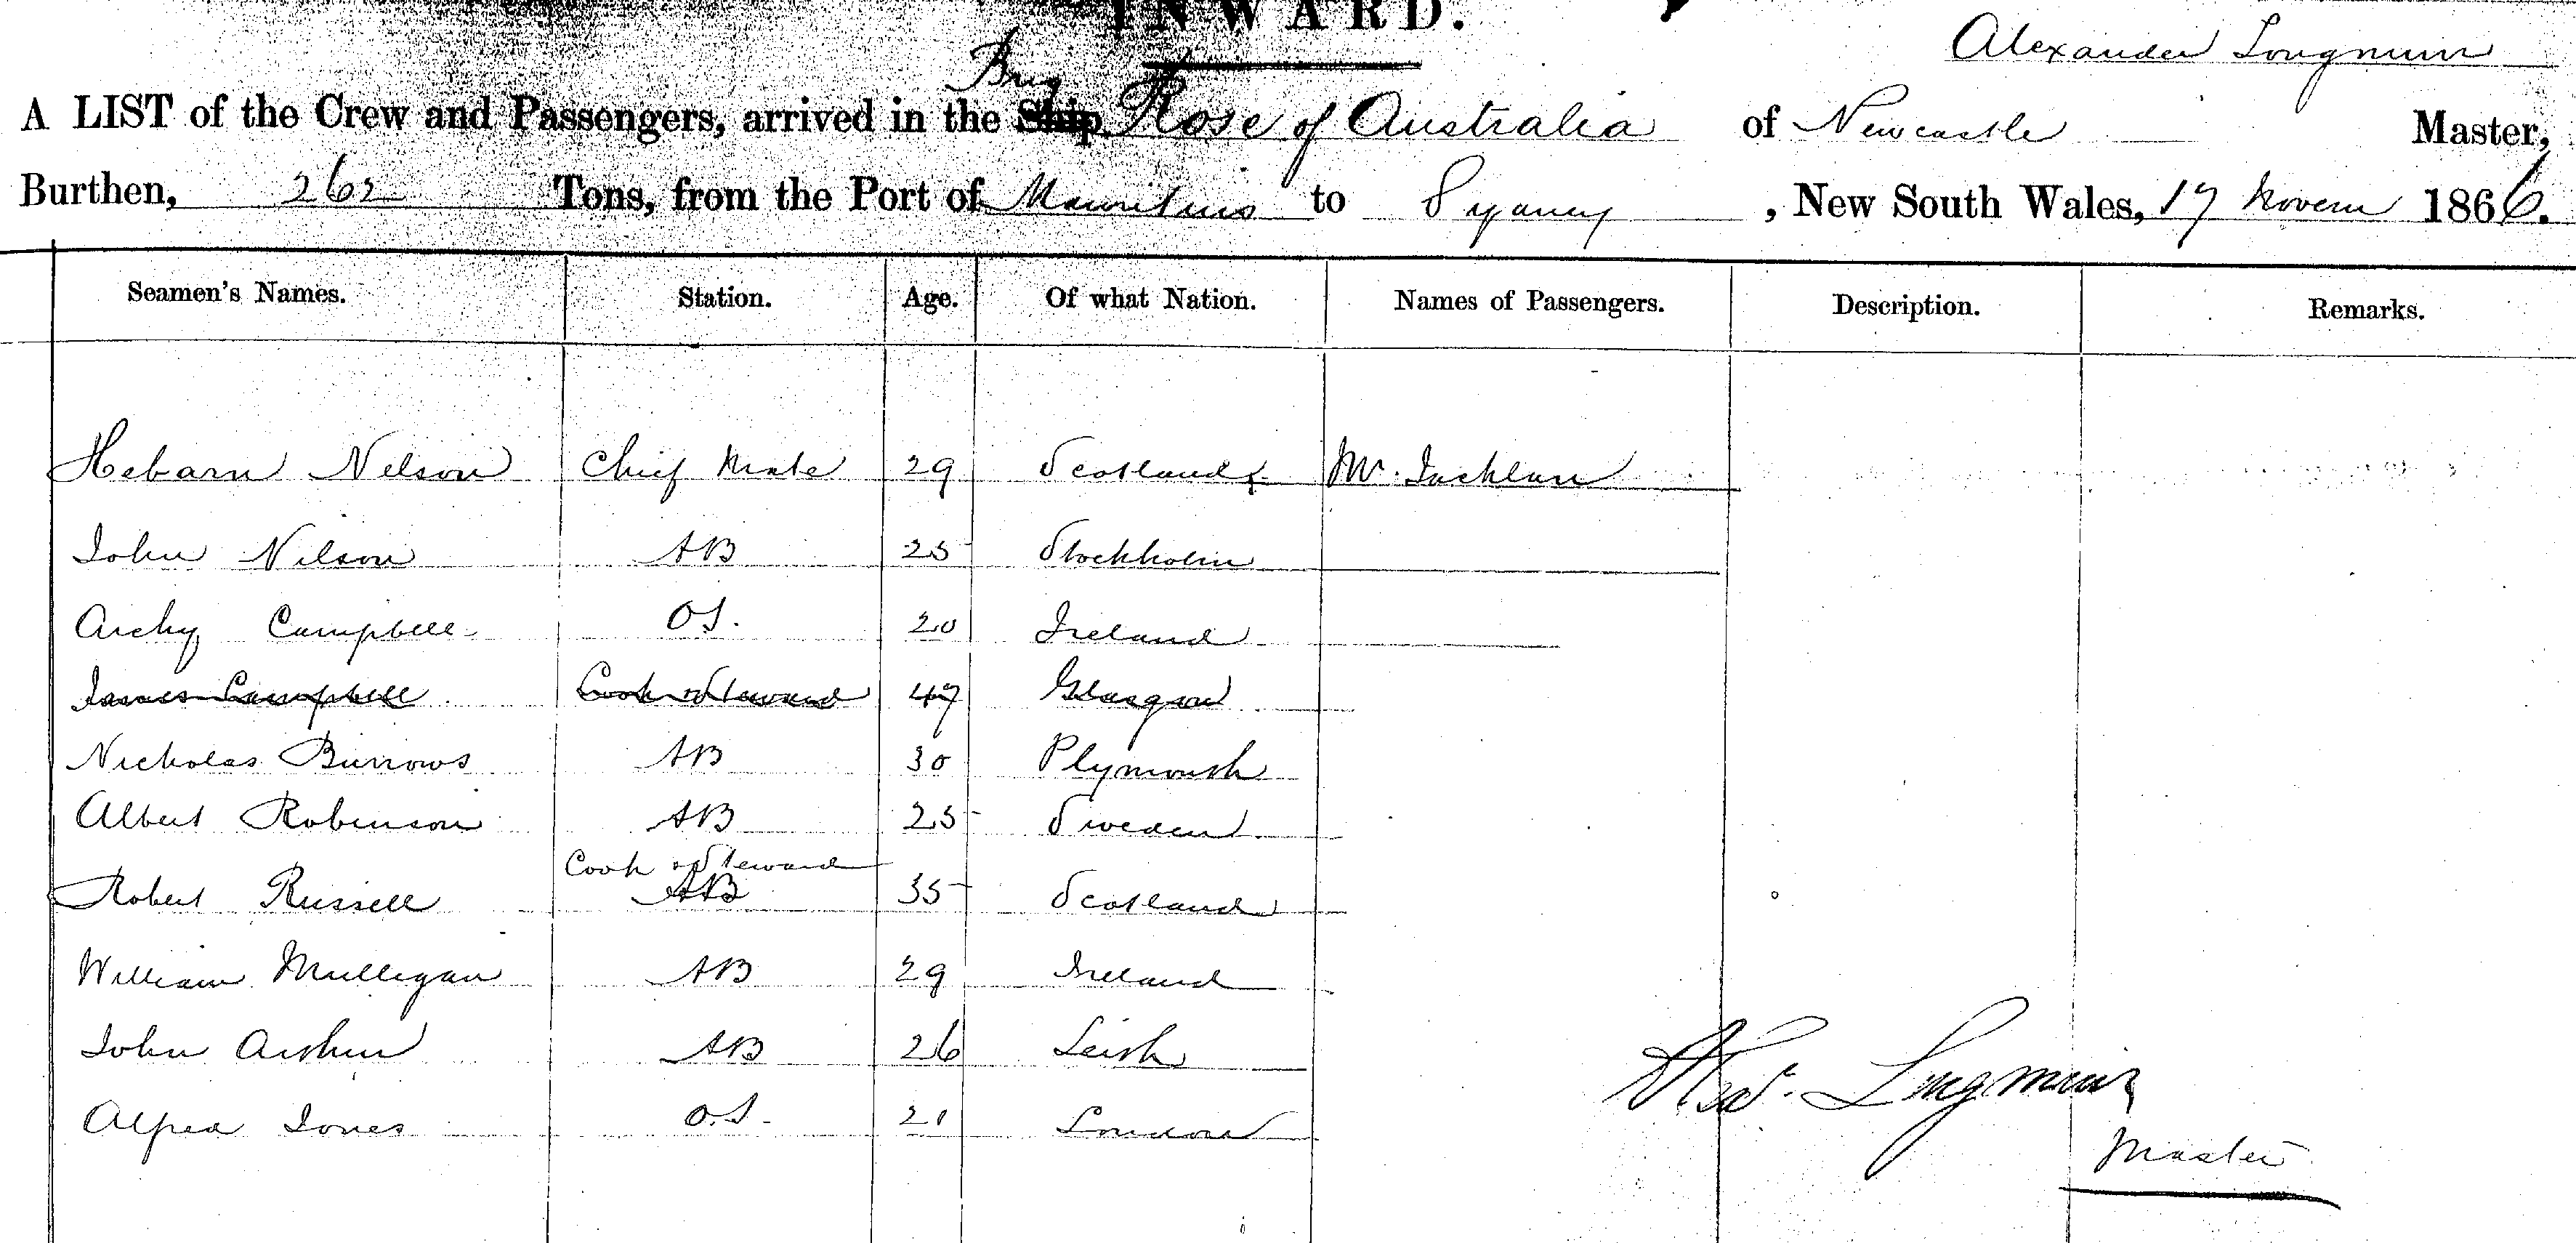 INWARD.
Alexander Longmuir
Brig
A LIST of the Crew and Passengers, arrived in the Ship Rose of Australia of Newcastle Master,
Burthen, 262 Tons, from the Port of Mauritius to Sydney, New South Wales, 17 Novem 1866.
Seamen's Names. Station. Age. Of what Nation. Names of Passengers. Description. Remarks.
Hebarn Nelson Chief Mate 29 Scotland Mr. Lachlan
John Nilson AB 25 Stockholm
Archy Campbell OS. 20 Ireland
James Campbell Cook & Steward 47 Glasgow
Nicholas Burrows AB 30 Plymouth
Albert Robinson AB 25 Sweden
Cook & Steward
Robert Russell AB 35 Scotland
William Mulligan AB 29 Ireland
John Arthur AB 26 Leith
Alfred Jones O.S. 21 London
Alexr. Longmuir
Master